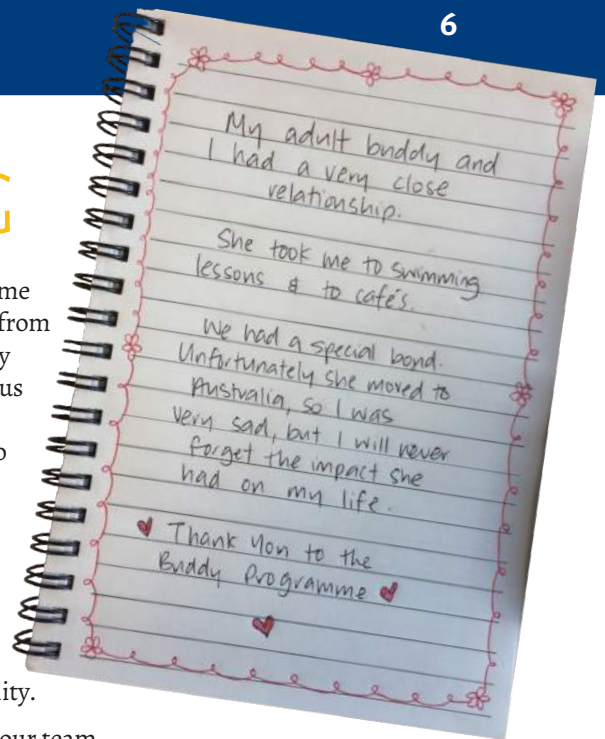 6
G
me
from
y
us
o
My adult buddy and
I had a very close
relationship.
She took me to swimming
lessons & to café's.
We had a special bond.
Unfortunately she moved to
Australia, so I was
very sad, but I will never
forget the impact she
had on my life.
Thank you to the
Buddy Programme
lity.
our team